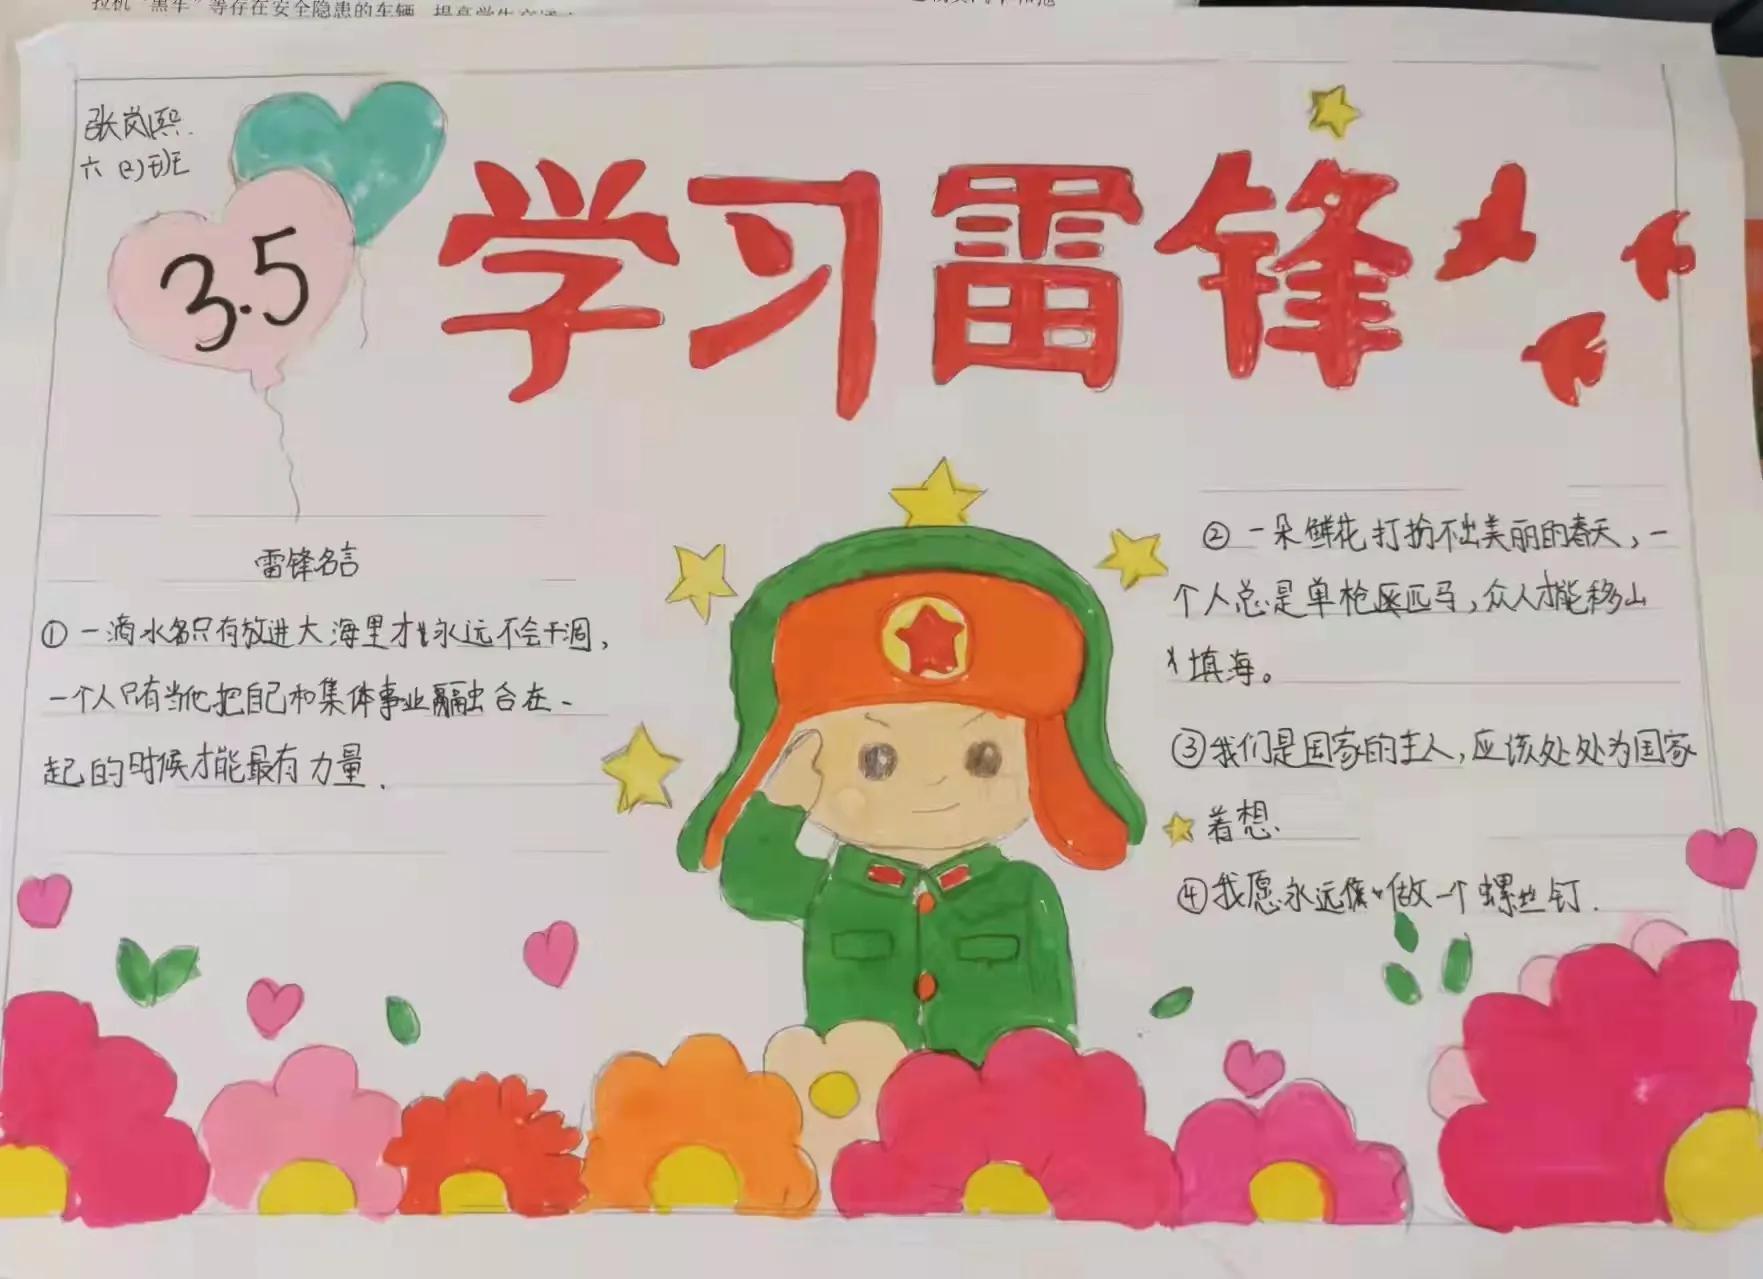 拉机“黑车”等存在安全隐患的车辆
张岚熙.
六(2)班
3.5
学习雷锋
雷锋名言
①一滴水只有放进大海里才永远不会干涸，
一个人只有当他把自己和集体事业融合在一
起的时候才能最有力量.
②一朵鲜花打扮不出美丽的春天，一
个人总是单枪匹马，众人才能移山
填海。
③我们是国家的主人，应该处处为国家
着想.
④我愿永远做一个螺丝钉.